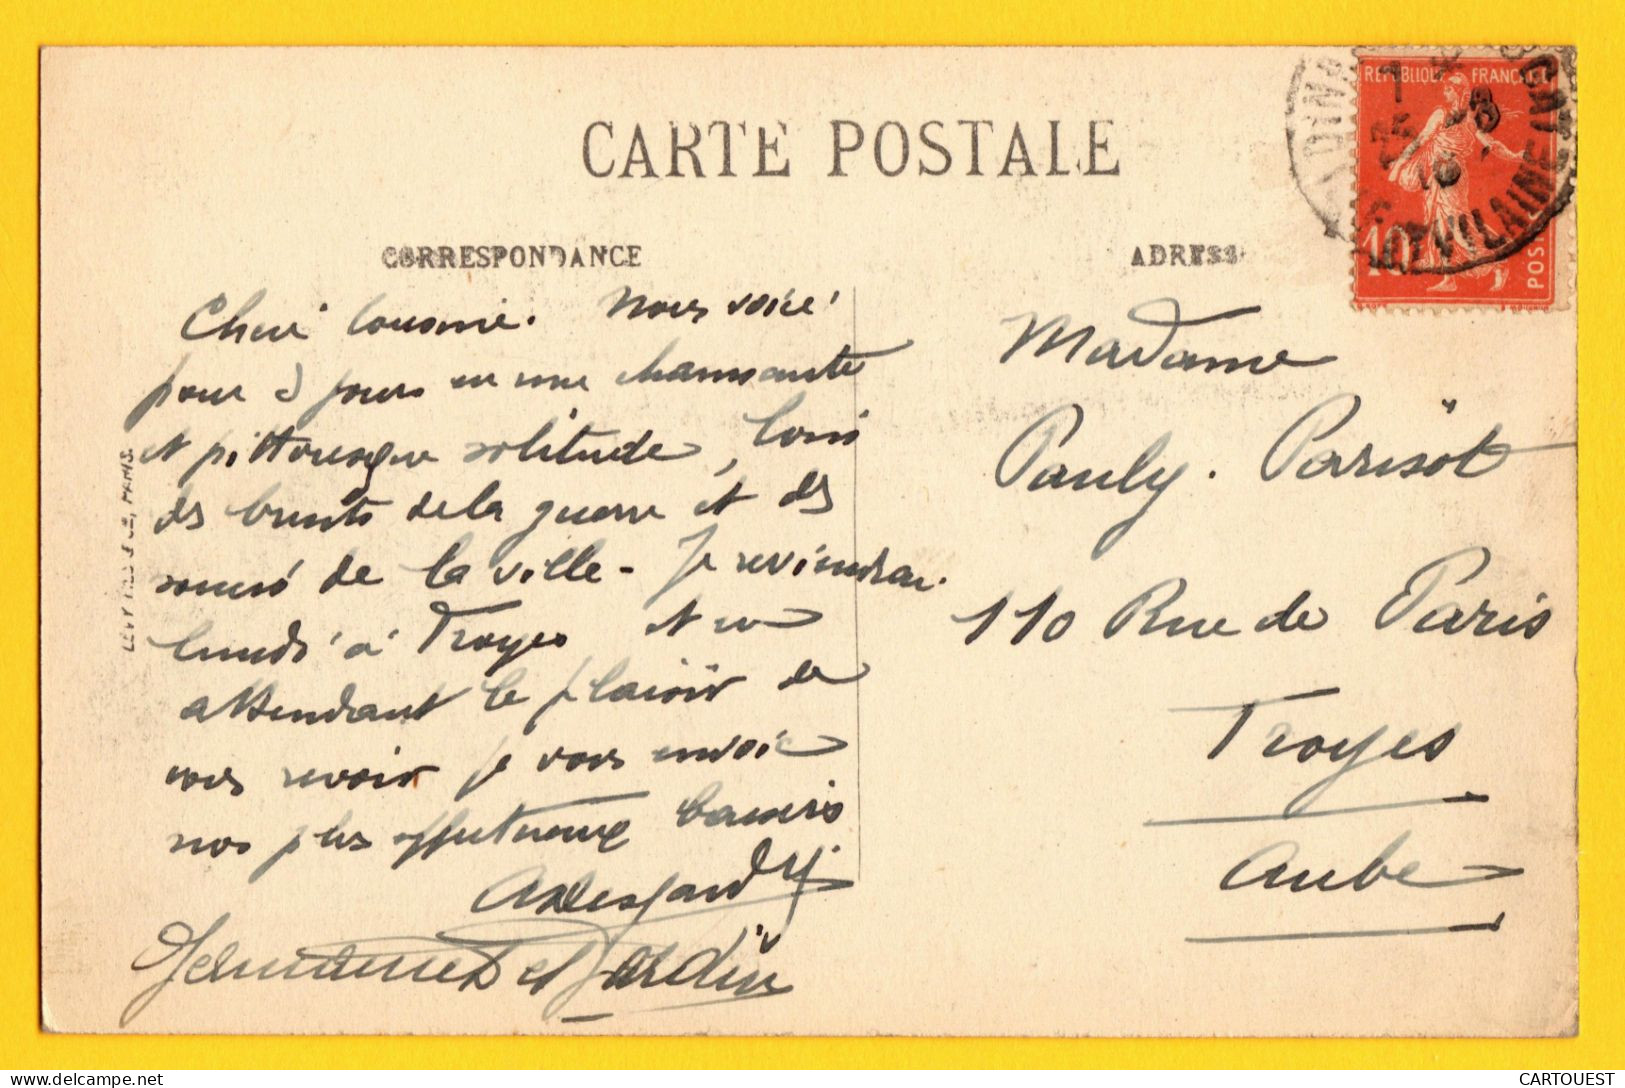 CARTE POSTALE
CORRESPONDANCE
ADRESSE
RÉPUBLIQUE FRANÇAISE
10
POSTES
VILAINE
Chère cousine. Nous voici
pour 8 jours en une charmante
et pittoresque solitude, loin
des bruits de la guerre et des
soucis de la ville - Je reviendrai
lundi à Troyes et en
attendant le plaisir de
vous revoir je vous envoie
nos plus affectueux baisers
Germaine et
LEVY FILS & CIE, PARIS.
Madame
Pauly. Parisot
110 Rue de Paris
Troyes
Aube
delcampe.net
CARTOUEST